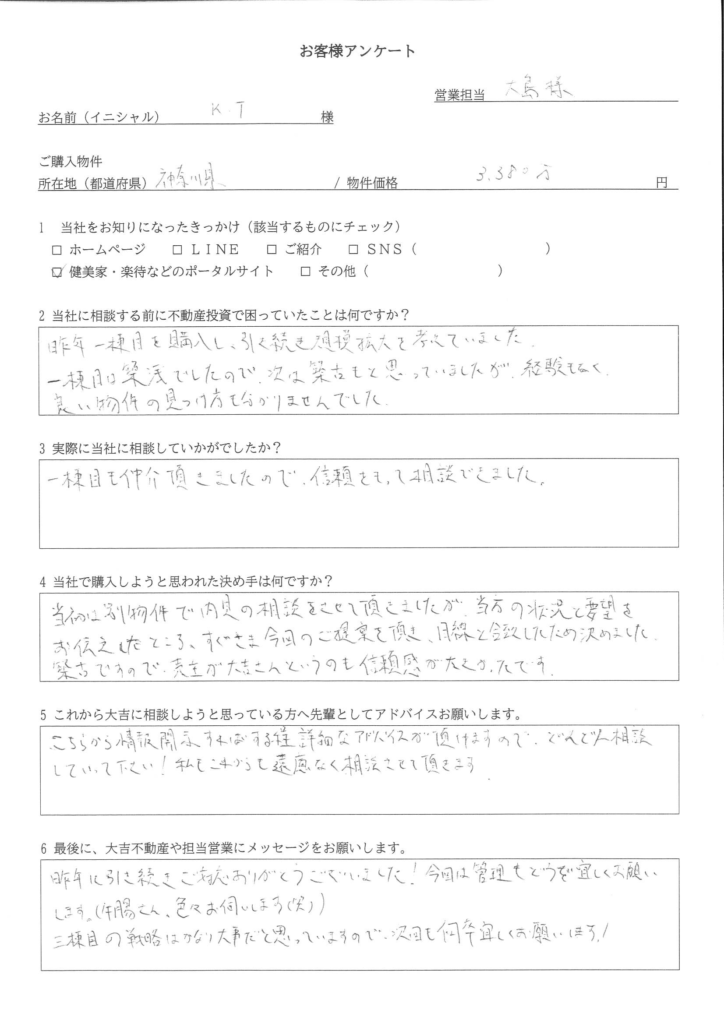 お客様アンケート
営業担当 大島様
お名前（イニシャル） K.T 様
ご購入物件
所在地（都道府県）神奈川県 / 物件価格 3.380万 円
1 当社をお知りになったきっかけ（該当するものにチェック）
□ ホームページ □ ＬＩＮＥ □ ご紹介 □ ＳＮＳ（ ）
☑ 健美家・楽待などのポータルサイト □ その他（ ）
2 当社に相談する前に不動産投資で困っていたことは何ですか？
昨年一棟目を購入し、引く続き規模拡大を考えていました.
一棟目は築浅でしたので、次は築古もと思っていましたが、経験もなく
良い物件の見つけ方も分かりませんでした.
3 実際に当社に相談していかがでしたか？
一棟目も仲介頂きましたので、信頼をもって相談できました。
4 当社で購入しようと思われた決め手は何ですか？
当初は別物件で内見の相談をさせて頂きましたが、当方の状況と要望を
お伝えしたところ、すぐさま今回のご提案を頂き、目線と合致したため決めました.
築古ですので、売主が大吉さんというのも信頼感が大きかったです.
5 これから大吉に相談しようと思っている方へ先輩としてアドバイスお願いします。
こちらから情報開示すればする程詳細なアドバイスが頂けますので、どんどん相談
していて下さい！私もこれからも遠慮なく相談させて頂きます
6 最後に、大吉不動産や担当営業にメッセージをお願いします。
昨年に引き続きご対応ありがとうございました！今回は管理もどうぞ宜しくお願い
します。(牛腸さん、色々お伺いします(笑))
三棟目の戦略はかなり大事だと思っていますので、次回も何卒宜しくお願いします！